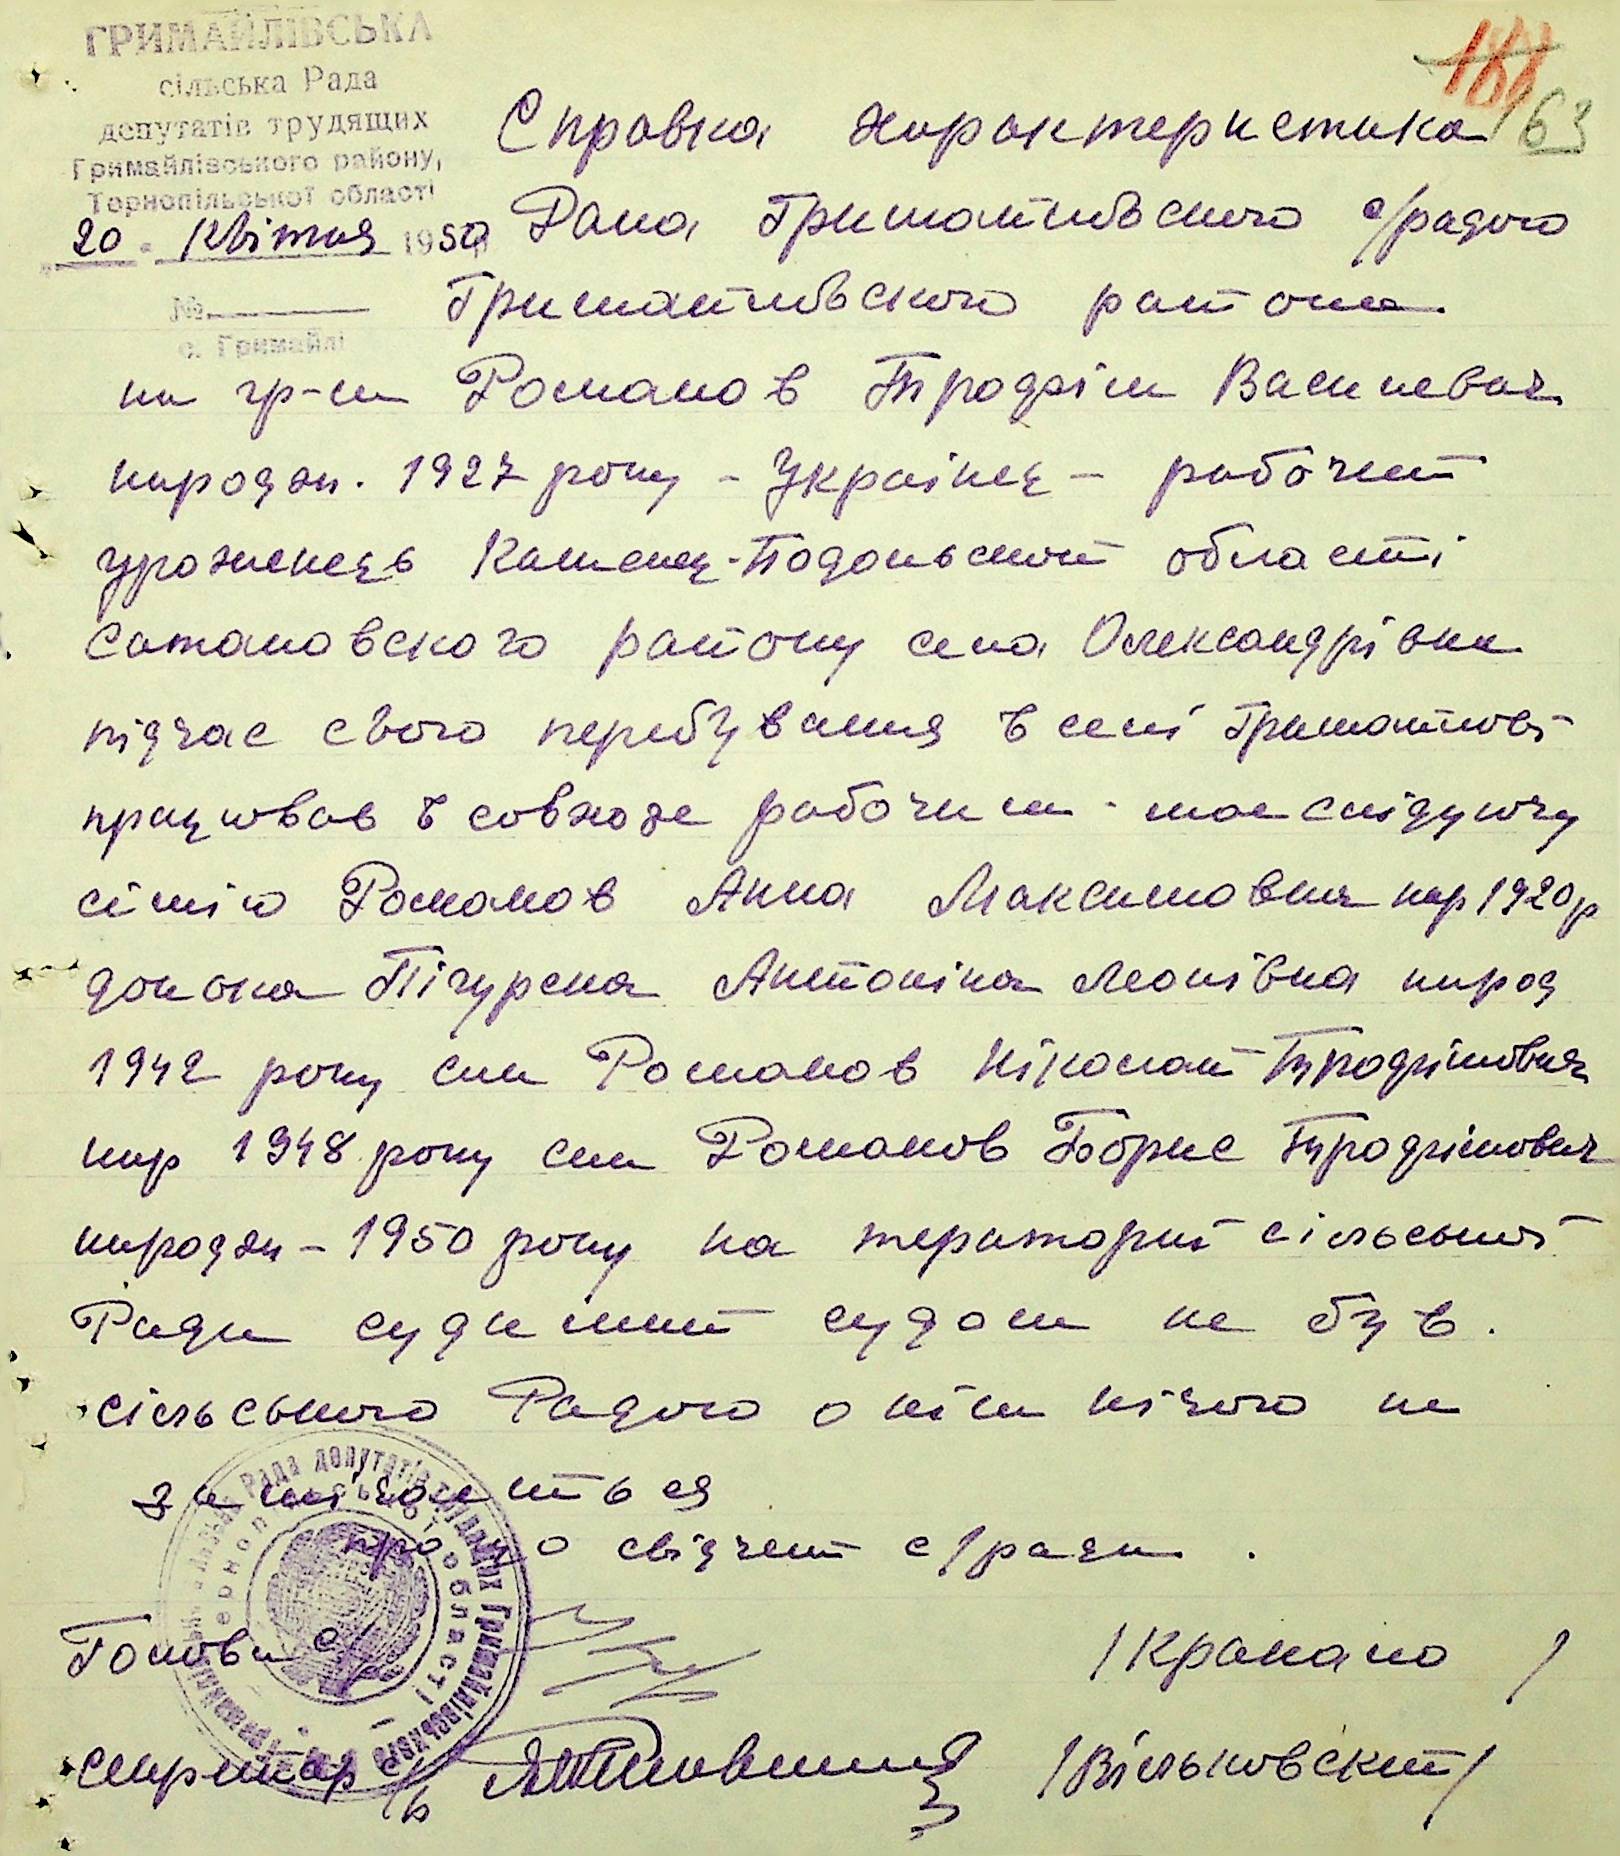 ГРИМАЙЛІВСЬКА
сільська Рада
депутатів трудящих
Гримайлівського району,
Тернопільської області
20 квітня 1950
№
с. Гримайлі
188
63
Справка характеристика
Дана Гримайлівскою с/радою
Гримайлівского района
на гр-на Романов Трофім Василевич
народж. 1927 року - Украінец - рабочий
урожинець Каменец-Подольской області
Сатановского району села Олександрівки
підчас свого перебування в селі Гримайлові
працював в совхозе рабочим - має слідуючу
сімію Романов Анна Максимовна нар 1920 р
дочка Пігурска Антоніна Леонівна народ
1942 року син Романов Ніколай Трофімович
нар 1948 року син Романов Борис Трофімович
народж - 1950 року на територіі сільської
Ради судимий судом не був.
сільською Радою о нім нічого не
замічаеться
про що свідчет с/рада.
Голова с/
секретар с/р
/Вільковский/
Рада депутатів трудящих Гримайлівського
області